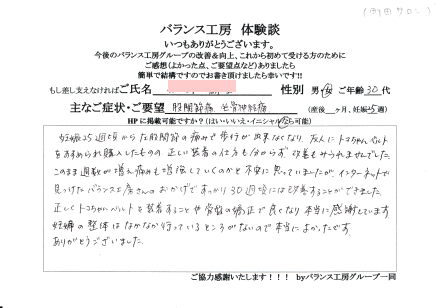 (町田サロン)
バランス工房 体験談
いつもありがとうございます。
今後のバランス工房グループの改善&向上、これから初めて受ける方のために
ご感想(よかった点、ご要望点など)ありましたら
簡単で結構ですのでお書き頂けましたら幸いです!!
もし差し支えなければご氏名 性別 男・女 ご年齢30代
主なご症状・ご要望 股関節痛 坐骨神経痛 (産後 ヶ月、妊娠 5週)
HPに掲載可能ですか?(はい・いいえ・イニシャルなら可能)
妊娠25週頃から左股関節の痛みで歩行が出来なくなり、友人にトコちゃんベルト
をすすめられ購入したものの正しい装着の仕方も分からず改善もみられませんでした。
このまま週数が増え痛みも増強していくのかと不安に思っていましたが、インターネットで
見つけたバランス工房さんのおかげですっかり30週頃には改善することができました。
正しくトコちゃんベルトを装着することや骨盤の矯正で良くなり本当に感謝しています。
妊婦の整体はなかなか行っているところがないので本当によかったです。
ありがとうございました。
ご協力感謝いたします!!! byバランス工房グループ一同